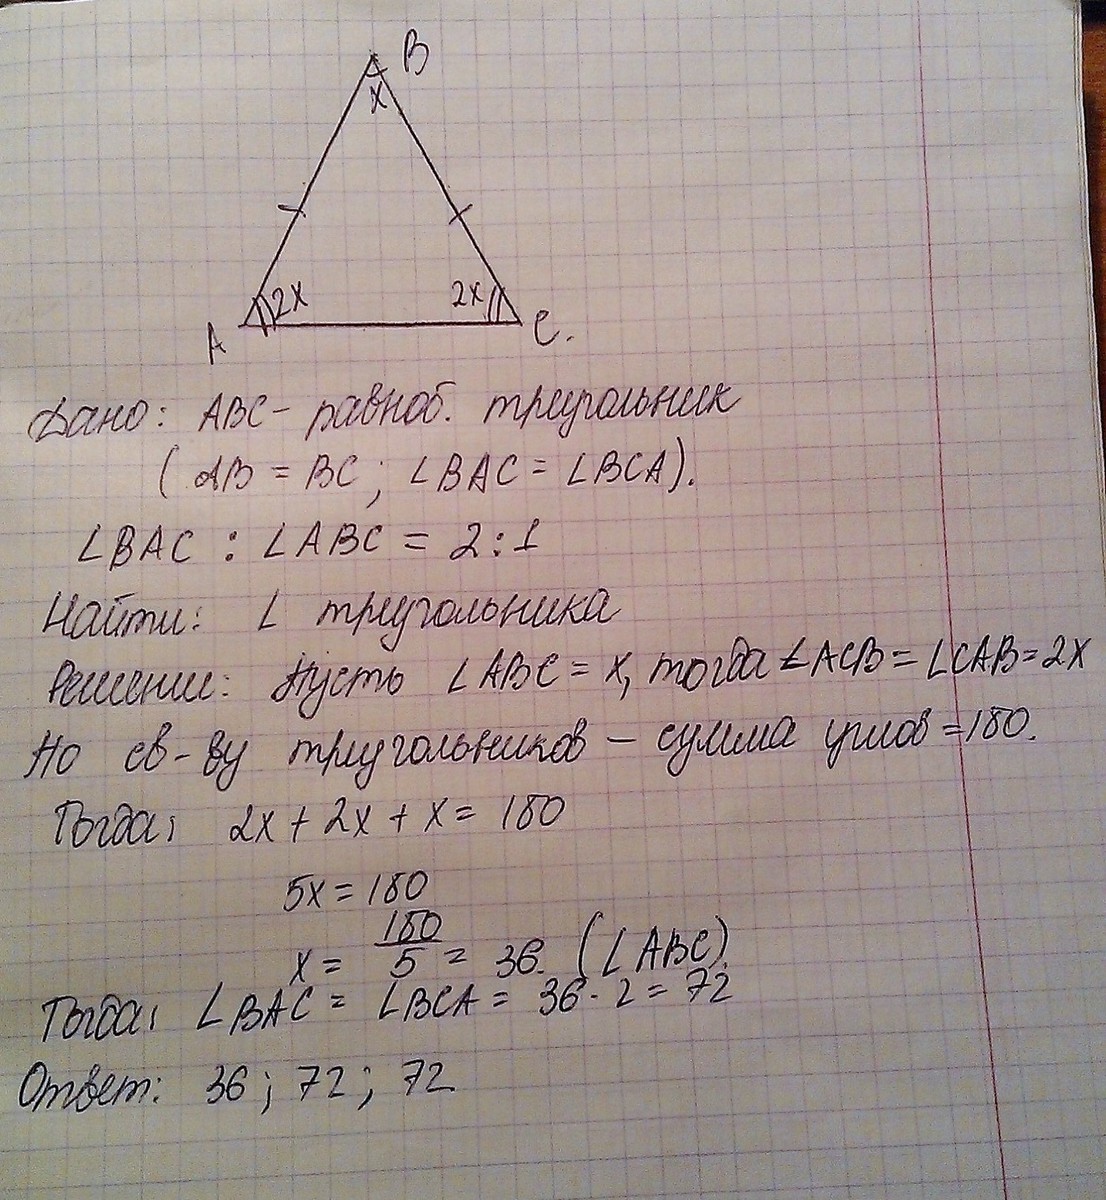 B
x
2x 2x
A C.
Дано: ABC - равноб. триугольник
( AB = BC ; ∠BAC = ∠BCA ).
∠BAC : ∠ABC = 2 : 1
Найти: ∠ триугольника
Решение: Пусть ∠ABC = x, тогда ∠ACB = ∠CAB = 2x
По св-ву триугольников - сумма углов = 180.
Тогда, 2x + 2x + x = 180
5x = 180
x = 180/5 = 36. (∠ABC).
Тогда, ∠BAC = ∠BCA = 36 · 2 = 72
Ответ: 36 ; 72 ; 72